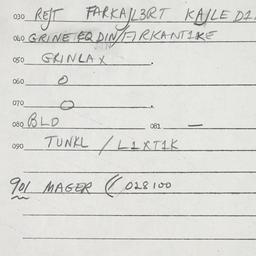 030 REJT FARKAJL3RT KAJLE D1
040 GRINE EQ DIN/FIRKANT1KE
050 GRINLAX
060 O
070 O
080 BLD 081 —
090 TUNKL / L1XT1K
901 MAGER (( 028100